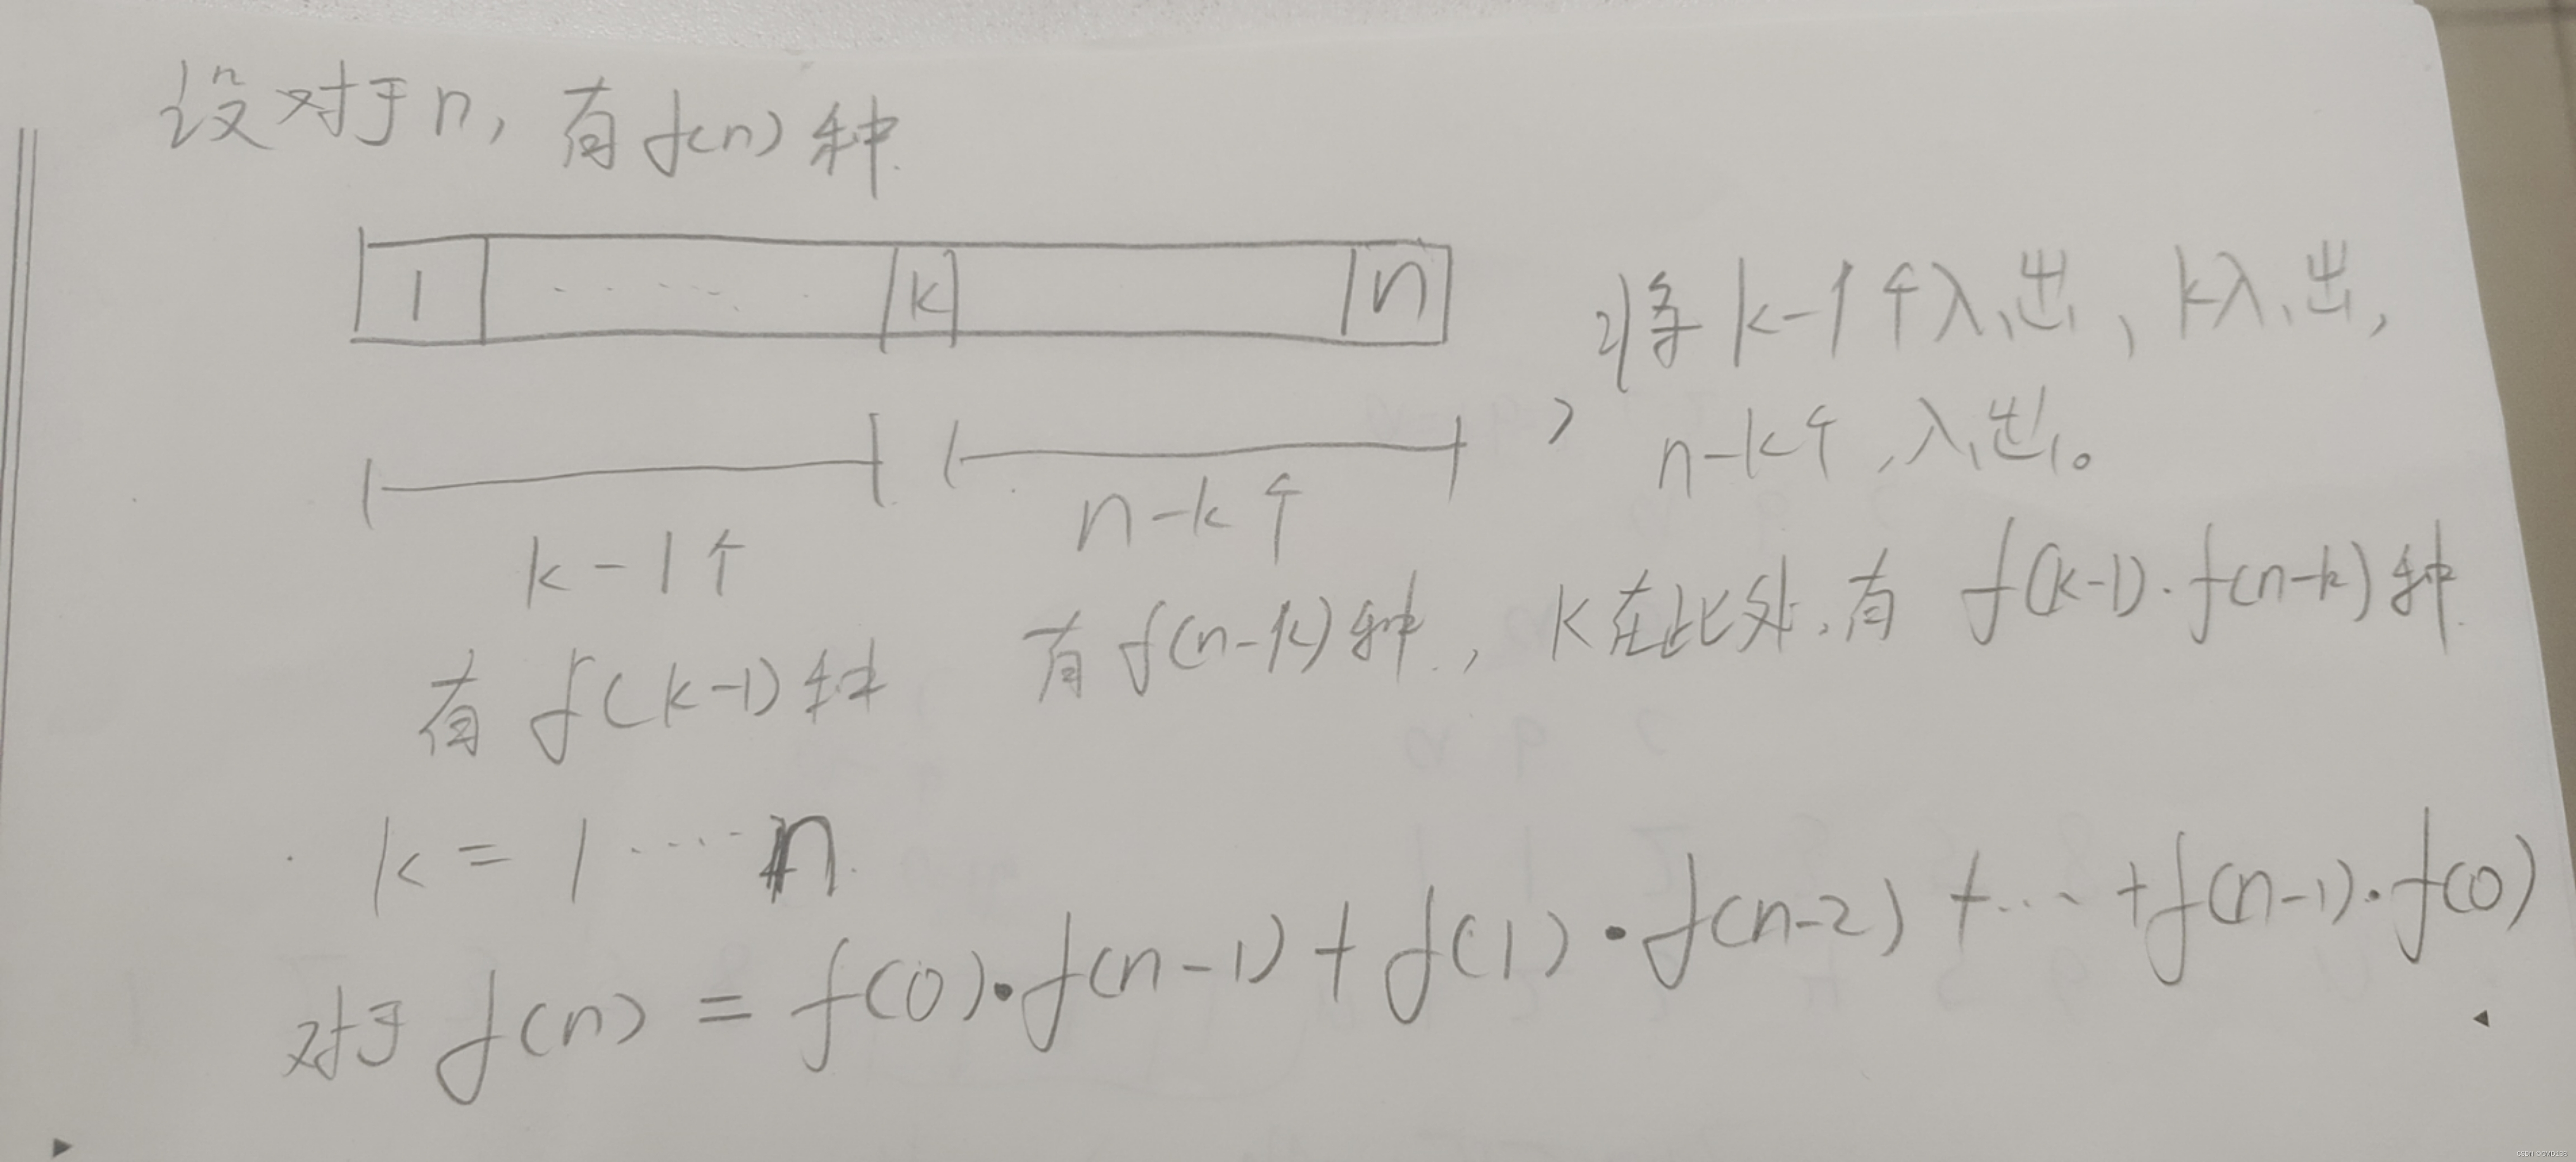 设对于n，有f(n)种.
1 ...... k n
将k-1个入、出、k入、出，
n-k个，入、出。
k-1个 n-k个
有f(k-1)种 有f(n-k)种，k在此处，有 f(k-1)·f(n-k)种
k = 1 ····· n.
对于f(n) = f(0)·f(n-1) + f(1)·f(n-2) + ··· + f(n-1)·f(0)